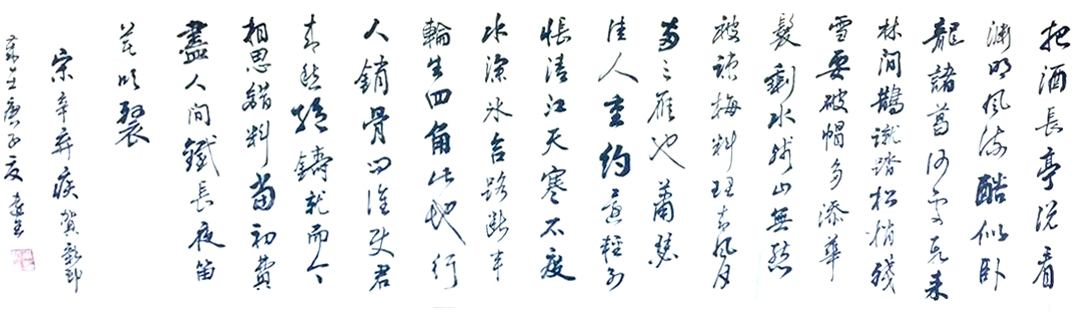 把酒長亭説看
淵明風流酷似卧
龍諸葛何處飛來
林間鵲蹴踏松梢殘
雪要破帽多添華
髮剩水殘山無態
被疎梅料理成風月
兩三雁也蕭瑟
佳人重約還輕別
悵清江天寒不渡
水深冰合路斷車
輪生四角此地行
人銷骨問誰使君
來愁絶鑄就而今
相思錯料當初費
盡人間鐵長夜笛
莫吹裂
宋辛弃疾賀新郎
庚子夏